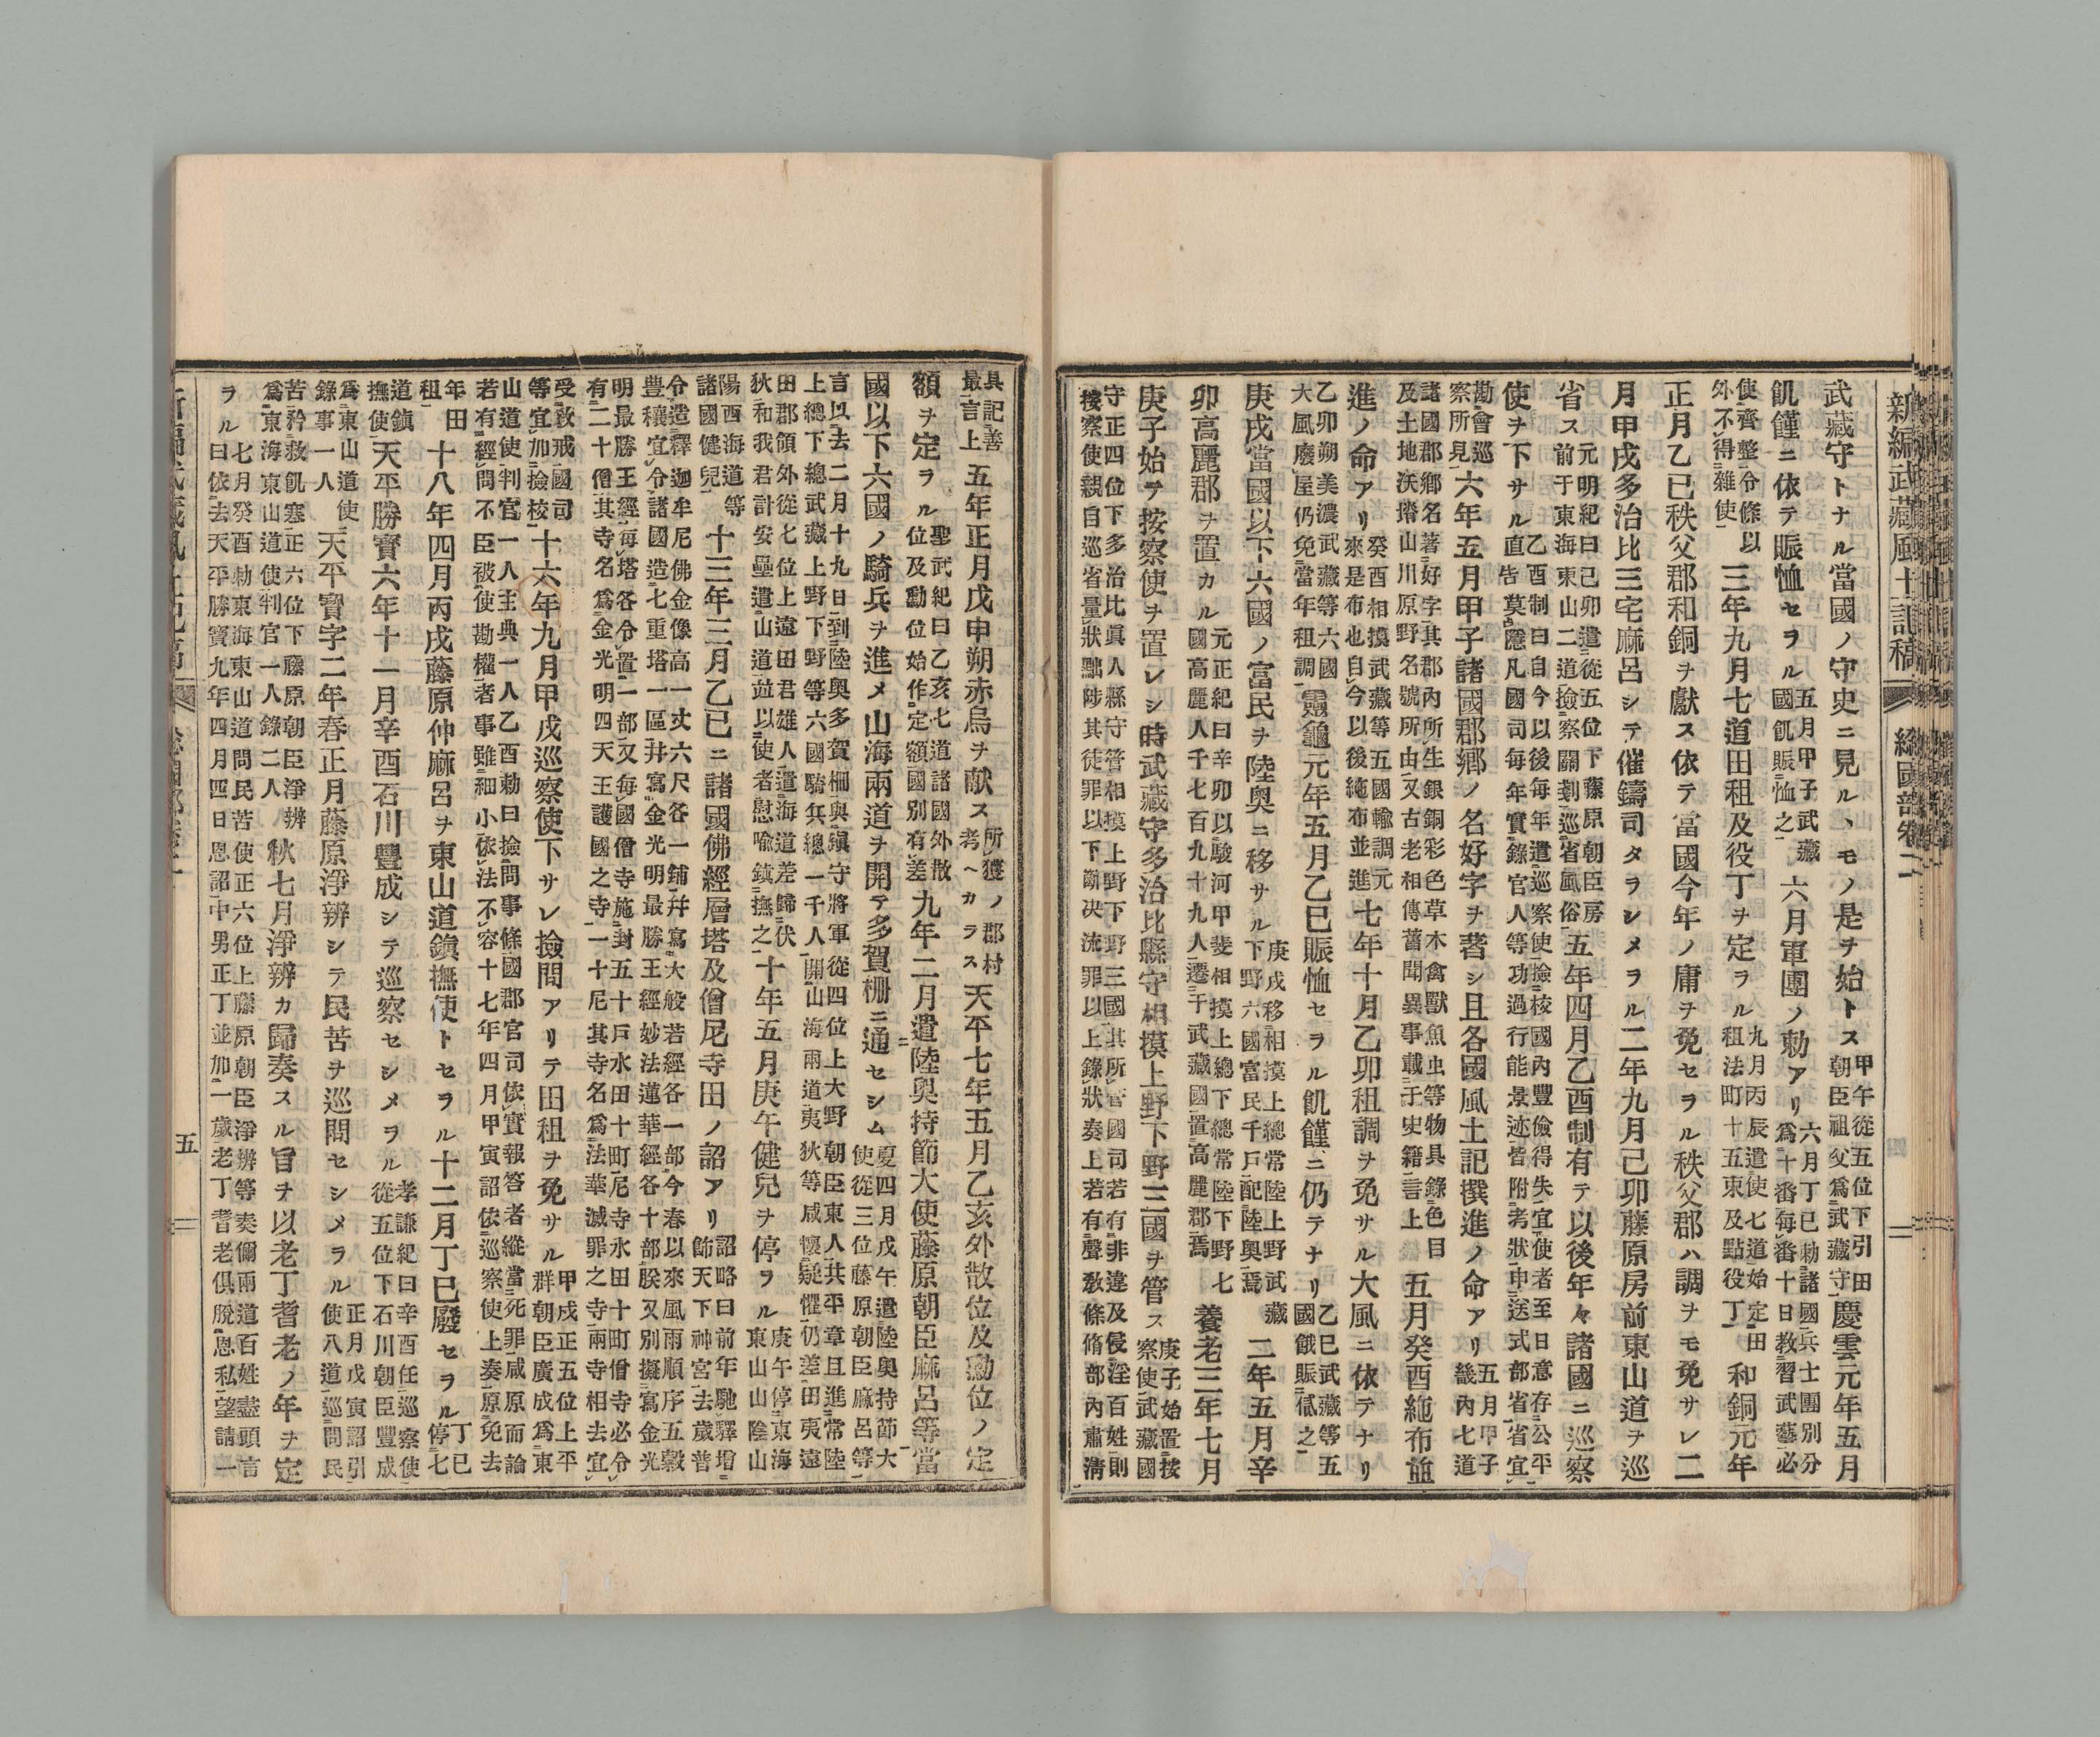 新編武藏風土記稿 總國部卷二
武藏守トナル當國ノ守史ニ見ルヽモノ是ヲ始トス甲午從五位下引田朝臣祖父爲武藏守慶雲元年五月
飢饉ニ依テ賑恤セヲル五月甲子武藏國飢賑恤之六月軍團ノ勅アリ六月丁巳勅諸國兵士團別分爲十番每番十日教習武藝必
使齊整令條以外不得雜使三年九月七道田租及役丁ヲ定ヲル九月丙辰遣使七道始定田租法町十五束及點役丁和銅元年
正月乙巳秩父郡和銅ヲ獻ス依テ當國今年ノ庸ヲ免セヲル秩父郡ハ調ヲモ免サレ二
月甲戌多治比三宅麻呂シテ催鑄司タラシメヲル二年九月己卯藤原房前東山道ヲ巡
省ス元明紀曰己卯遣從五位下藤原朝臣房前于東海東山二道撿察關剗巡省風俗五年四月乙酉制有テ以後年々諸國ニ巡察
使ヲ下サル乙酉制曰自今以後每年遣巡察使撿校國內豐儉得失宜使者至日意存公平直告莫隱凡國司每年實錄官人等功過行能景迹皆附考狀申送式部省省宜
勘會巡察所見六年五月甲子諸國郡鄉ノ名好字ヲ著シ且各國風土記撰進ノ命アリ五月甲子畿內七道
諸國郡鄉名著好字其郡內所生銀銅彩色草木禽獸魚虫等物具錄色目及土地沃塉山川原野名號所由又古老相傳舊聞異事載于史籍言上五月癸酉絁布並
進ノ命アリ癸酉相摸武藏等五國輸調元來是布也自今以後絁布並進七年十月乙卯租調ヲ免サル大風ニ依テナリ
乙卯朔美濃武藏等六國大風廢屋仍免當年租調靈龜元年五月乙巳賑恤セラル飢饉ニ仍テナリ乙巳武藏等五國餓賑貸之
庚戌當國以下六國ノ富民ヲ陸奥ニ移サル庚戌移相摸上總常陸上野武藏下野六國富民千戶配陸奥焉二年五月辛
卯高麗郡ヲ置カル元正紀曰辛卯以駿河甲斐相摸上總下總常陸下野七國高麗人千七百九十九人遷于武藏國置高麗郡焉養老三年七月
庚子始テ按察使ヲ置レシ時武藏守多治比縣守相摸上野下野三國ヲ管ス庚子始置按察使武藏國
守正四位下多治比眞人縣守管相摸上野下野三國其所管國司若有非違及侵淫百姓則按察使親自巡省量狀黜陟其徒罪以下斷决流罪以上錄狀奏上若有聲教條脩部內肅淸
具記善最言上五年正月戊申朔赤烏ヲ献ス所獲ノ郡村考ヘカラス天平七年五月乙亥外散位及勳位ノ定
額ヲ定ヲル聖武紀曰乙亥七道諸國外散位及勳位始作定額國別有差九年二月遣陸奥持節大使藤原朝臣麻呂等當
國以下六國ノ騎兵ヲ進メ山海兩道ヲ開テ多賀柵ニ通セシム夏四月戊午遣陸奥持節大使從三位藤原朝臣麻呂等
言以去二月十九日到陸奥多賀柵與鎭守將軍從四位上大野朝臣東人共平章且進常陸上總下總武藏上野下野等六國騎兵總一千人開山海兩道夷狄等咸懷疑懼仍差田夷遠
田郡領外從七位上遠田君雄人遣海道差歸伏狄和我君計安壘遣山道並以使者慰喩鎭撫之十年五月庚午健兒ヲ停ヲル庚午停東海東山山陰山
陽西海道等諸國健兒十三年三月乙巳ニ諸國佛經層塔及僧尼寺田ノ詔アリ詔略曰前年馳驛增飾天下神宮去歲普
令造釋迦牟尼佛金像高一丈六尺各一鋪并寫大般若經各一部今春以來風雨順序五穀豐穰宜令諸國造七重塔一區并寫金光明最勝王經妙法蓮華經各十部朕又別擬寫金光
明最勝王經每塔各令置一部又每國僧寺施封五十戶水田十町尼寺水田十町僧寺必令有二十僧其寺名爲金光明四天王護國之寺一十尼其寺名爲法華滅罪之寺兩寺相去宜
受敎戒國司等宜加撿校十六年九月甲戌巡察使下サレ撿問アリテ田租ヲ免サル甲戌正五位上平群朝臣廣成爲東
山道使判官一人主典一人乙酉勅曰撿問事條國郡官司依實報答者縱當死罪咸原而論若有經問不臣被使勘權者事雖細小依法不容十七年四月甲寅詔依巡察使上奏原免去
年田租十八年四月丙戌藤原仲麻呂ヲ東山道鎭撫使トセヲル十二月丁巳廢セヲル丁巳停七
道鎭撫使天平勝寶六年十一月辛酉石川豐成シテ巡察セシメヲル孝謙紀曰辛酉任巡察使從五位下石川朝臣豐成
爲東山道使錄事一人天平寶字二年春正月藤原淨辨シテ民苦ヲ巡問セシメラル正月戊寅詔引使八道巡問民
苦矜救飢寒正六位下藤原朝臣淨辨爲東海東山道使判官一人錄二人秋七月淨辨カ歸奏スル旨ヲ以老丁耆老ノ年ヲ定
ヲル七月癸酉勅東海東山道問民苦使正六位上藤原朝臣淨辨等奏偁兩道百姓盡頭言曰依去天平勝寶九年四月四日恩詔中男正丁並加一歲老丁耆老俱脫恩私望請一
五